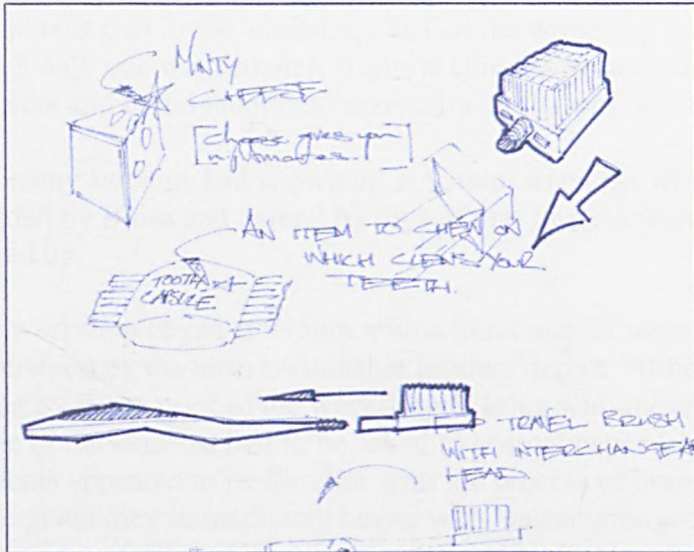 MINTY
CHEESE
[cheese gives you
nightmares!]
AN ITEM TO CHEW ON
WHICH CLEANS YOUR
TEETH.
TOOTH
CAPSULE
TRAVEL BRUSH
WITH INTERCHANGEAB
HEAD